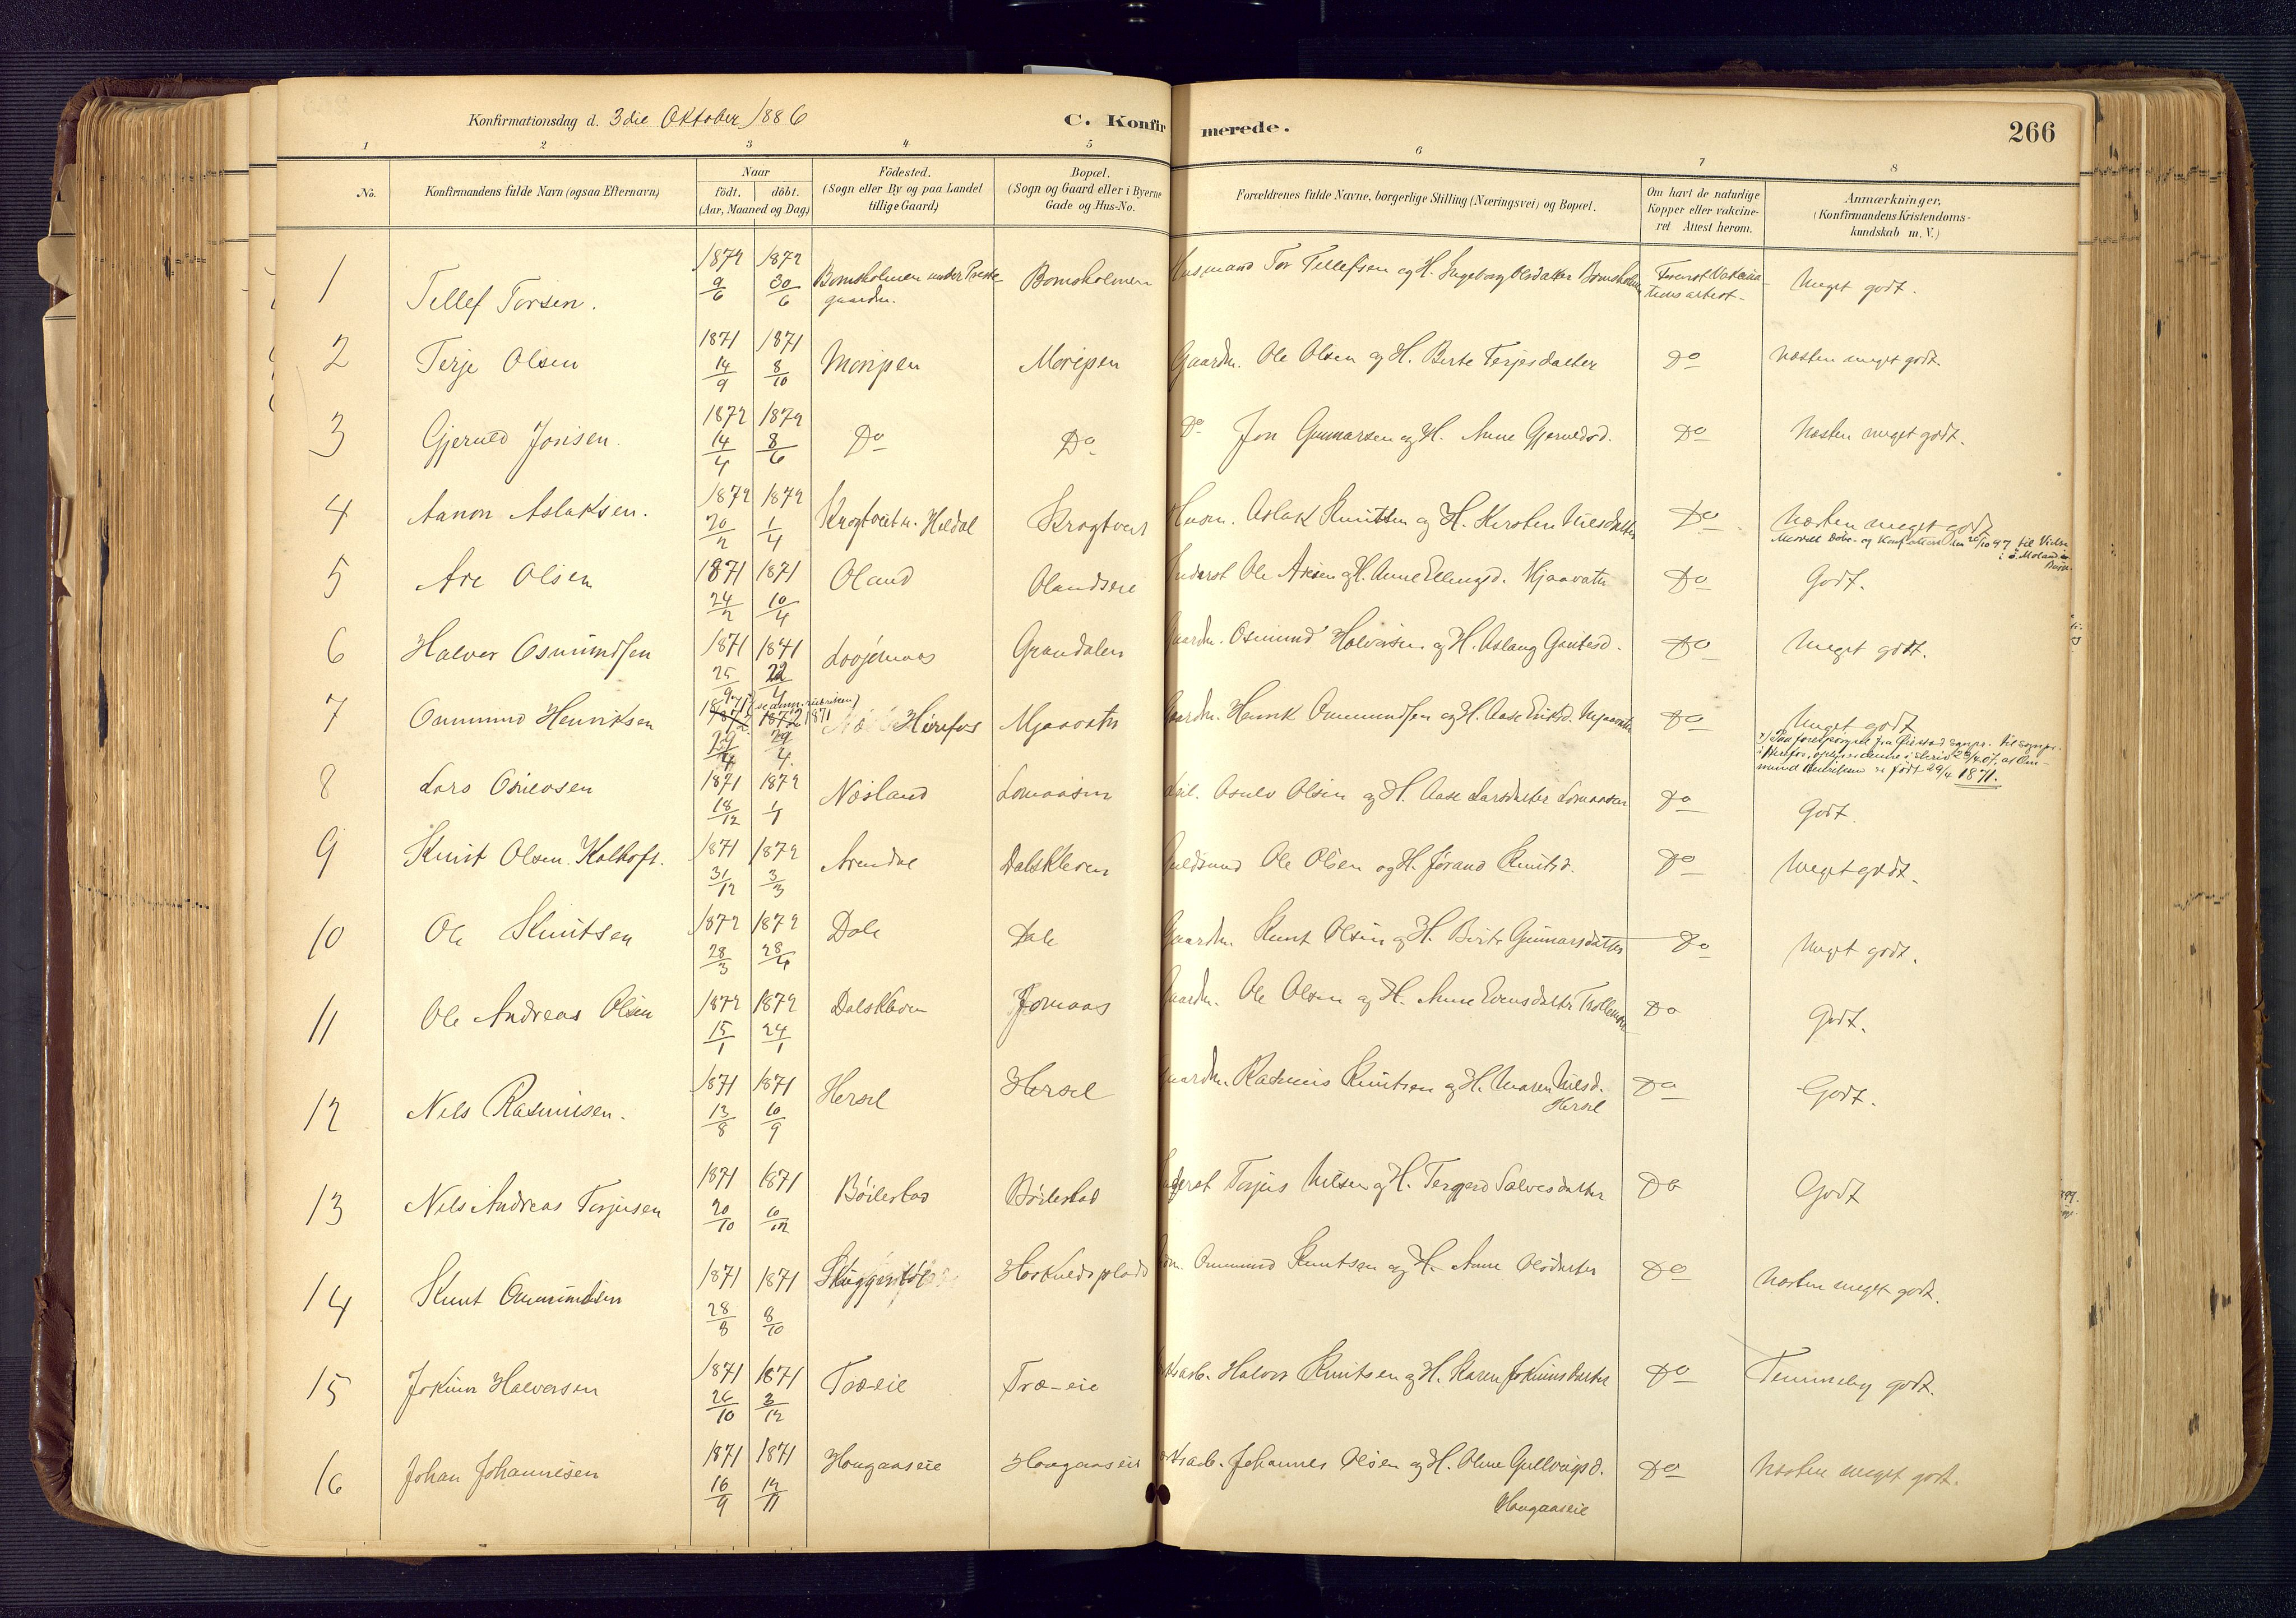 Konfirmationsdag d. 3die Oktober 1886 C. Konfirmerede. 266
1 2 3 4 5 6 7 8
No. Konfirmandens fulde Navn (ogsaa Efternavn) Naar født. døbt. (Aar, Maaned og Dag) Fødested. (Sogn eller By og paa Landet tillige Gaard) Bopæl. (Sogn og Gaard eller i Byerne Gade og Hus-No. Forældrenes fulde Navne, borgerlige Stilling (Næringsvei) og Bopæl. Om havt de naturlige Kopper eller vakcineret Attest herom. Anmærkninger. (Konfirmandens Kristendomskundskab m. V.)
1 Tellef Torsen. 1872 9/6 1872 30/6 Bomsholmen under Præstegaarden. Bomsholmen Husmand Tor Tellefsen og H. Ingeborg Olsdatter Bomsholmen Forevist Vakcinationsattest- Meget godt.
2 Terje Olsen 1871 14/9 1871 8/10 Moripen Moripen Gaardm. Ole Olsen og H. Berte Terjesdatter Do Næsten meget godt.
3 Gjeruld Jonsen. 1872 14/4 1872 8/6 Do Do Do Jon Gunnarsen og H. Anne Gjerulds d. Do Næsten meget godt.
4 Aanon Aslaksen. 1872 20/2 1872 1/4 Krogtveit u. Heldal Krogtveit Husm. Aslak Knutsen og H. Kirsten Nilsdatter Do Næsten meget godt
5 Are Olsen 1871 24/2 1871 10/4 Oland Olandseie Inderst Ole Aresen og H. Anne Ellingsd. Mjaavatn Do Godt.
6 Halvor Osmundsen 1871 25/9 1871 22/4 Løvjomaas Grandalen Gaardm. Osmund Halvorsen og H. Aslaug Gautesd. Do Meget godt.
7 Ommund Henriksen 1871 (se anm. rubriken) 1872 29/4 1872 1871 29/4 Herefos Mjaavatn Gaardm. Henrik Ommundsen og H. Aase Eriksd. Mjaavatn Do Meget godt
x) Paa forespørgsel fra Øiestad sognpr. til sognpr. i Herefos, oplyses denne i skriv. 29/4.07, at Ommund Henriksen er født 29/4 1871.
8 Lars Osulvsen 1871 18/12 1872 1/1 Næsland Lomaasen Asulv Olsen og H. Aase Larsdatter Lomaasen Do Godt.
9 Knut Olsen Kalhoft. 1871 31/12 1872 3/3 Arendal Dalskleven Ole Olsen og H. Jørand Knutsd. Do Meget godt.
10 Ole Knutsen 1872 28/3 1872 28/4 Dale Dale Gaardm. Knut Olsen og H. Birte Gunnarsdatter Do Meget godt.
11 Ole Andreas Olsen 1872 15/1 1872 24/1 Dalskleven Jomaas Gaardm. Ole Olsen og H. Anne Evensdatter Do Godt.
12 Nils Rasmusen. 1871 13/8 1871 10/9 Hersel Hersel Gaardm. Rasmus Knutsen og H. Maren Nilsd. Hersel Do Godt.
13 Nils Andreas Torjusen 1871 20/10 1871 10/12 Bøilestad Bøilestad Inderst Torjus Nilsen og H. Tergerd Salvesdatter Do Godt
14 Knut Ommundsen 1871 28/8 1871 8/10 Horkuldsplads Ommund Knutsen og H. Anne Olsdatter Do Næsten meget godt.
15 Jokum Halvorsen 1871 26/10 1871 3/12 Træ-eie Træ-eie Halvor Knutsen og H. Karen Jokumsdatter Do Temmelig godt.
16 Johan Johannesen 1871 16/9 1871 12/11 Haugaaseie Haugaaseie Johannes Olsen og H. Oline Gullveigsd. Haugaaseie Do Næsten meget godt.